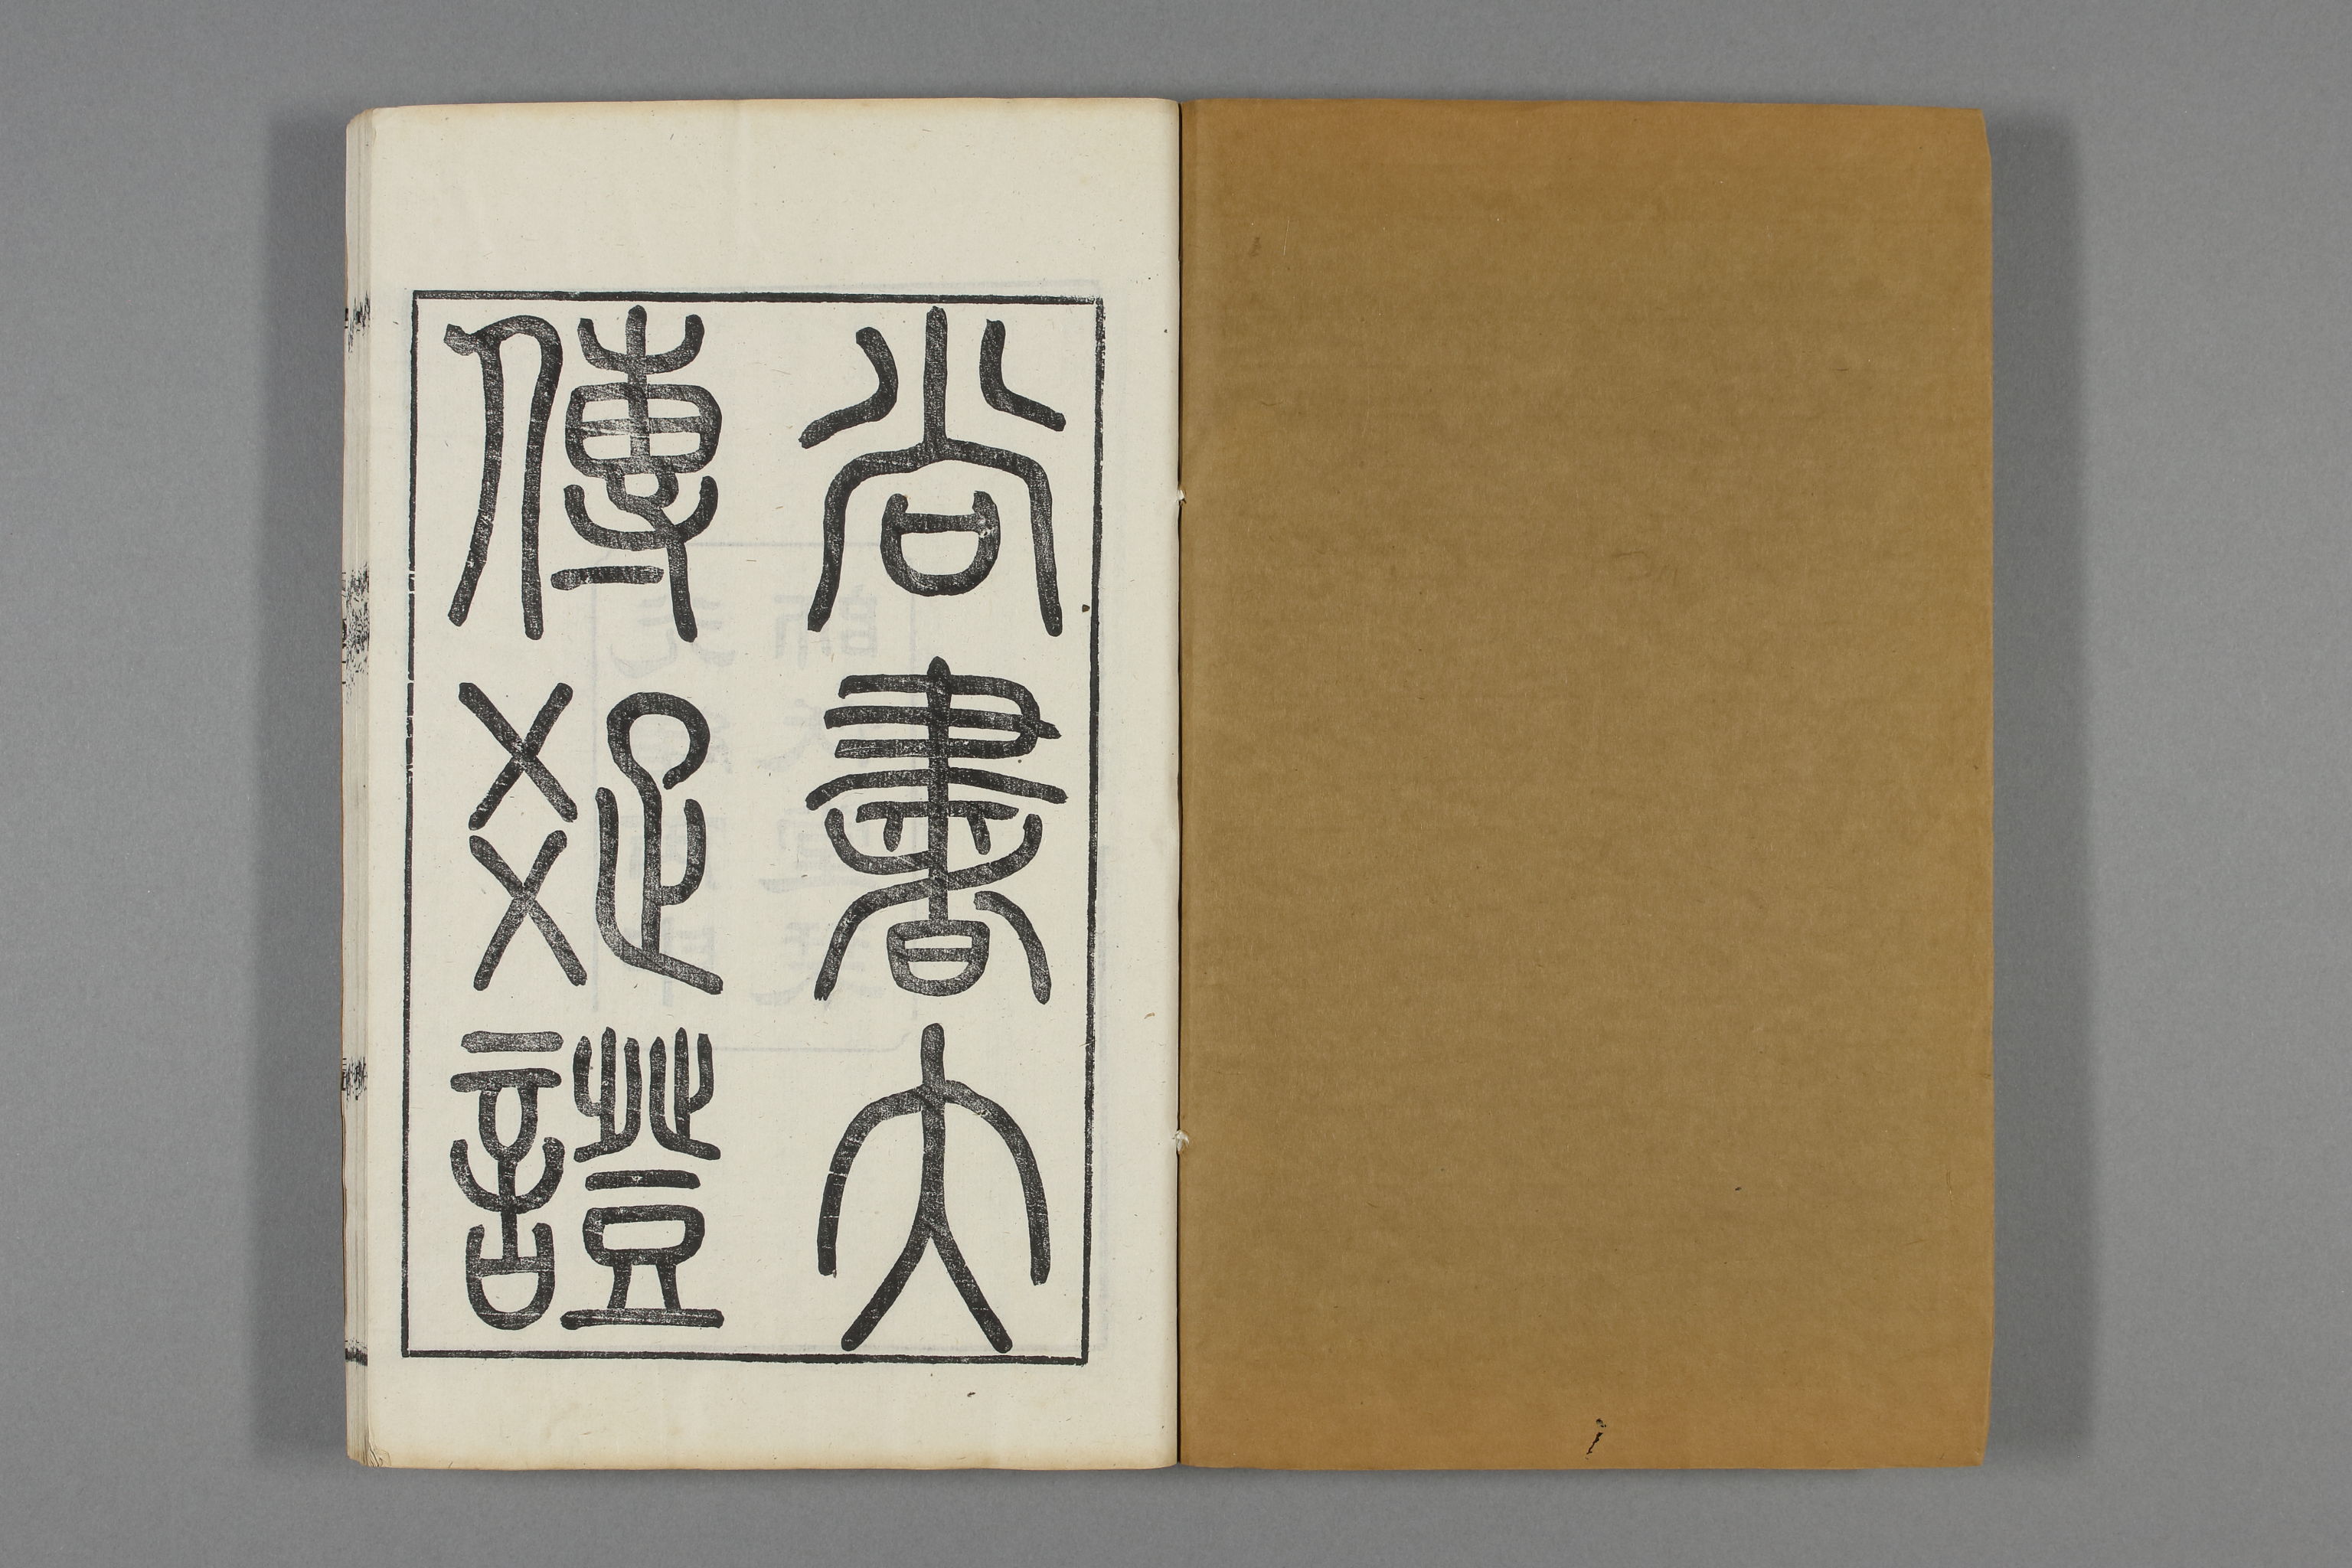 尚書大
傳疏證